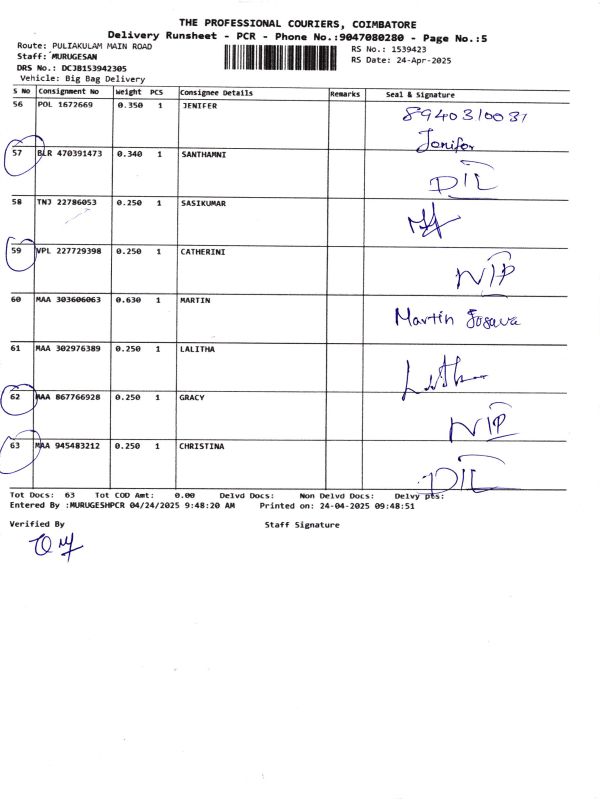 THE PROFESSIONAL COURIERS, COIMBATORE
Delivery Runsheet - PCR - Phone No.:9047080280 - Page No.:5
Route: PULIAKULAM MAIN ROAD
Staff: MURUGESAN
DRS No.: DCJB153942305
Vehicle: Big Bag Delivery
RS No.: 1539423
RS Date: 24-Apr-2025
S No Consignment No Weight PCS Consignee Details Remarks Seal & Signature
56 POL 1672669 0.350 1 JENIFER 8940310031
Jenifer
57 BLR 470391473 0.340 1 SANTHAMNI D/L
58 TNJ 22786053 0.250 1 SASIKUMAR
59 VPL 227729398 0.250 1 CATHERINI N/P
60 MAA 303606063 0.630 1 MARTIN Martin
61 MAA 302976389 0.250 1 LALITHA
62 MAA 867766928 0.250 1 GRACY N/P
63 MAA 945483212 0.250 1 CHRISTINA D/L
Tot Docs: 63 Tot COD Amt: 0.00 Delvd Docs: Non Delvd Docs: Delvy pts:
Entered By :MURUGESHPCR 04/24/2025 9:48:20 AM Printed on: 24-04-2025 09:48:51
Verified By Staff Signature